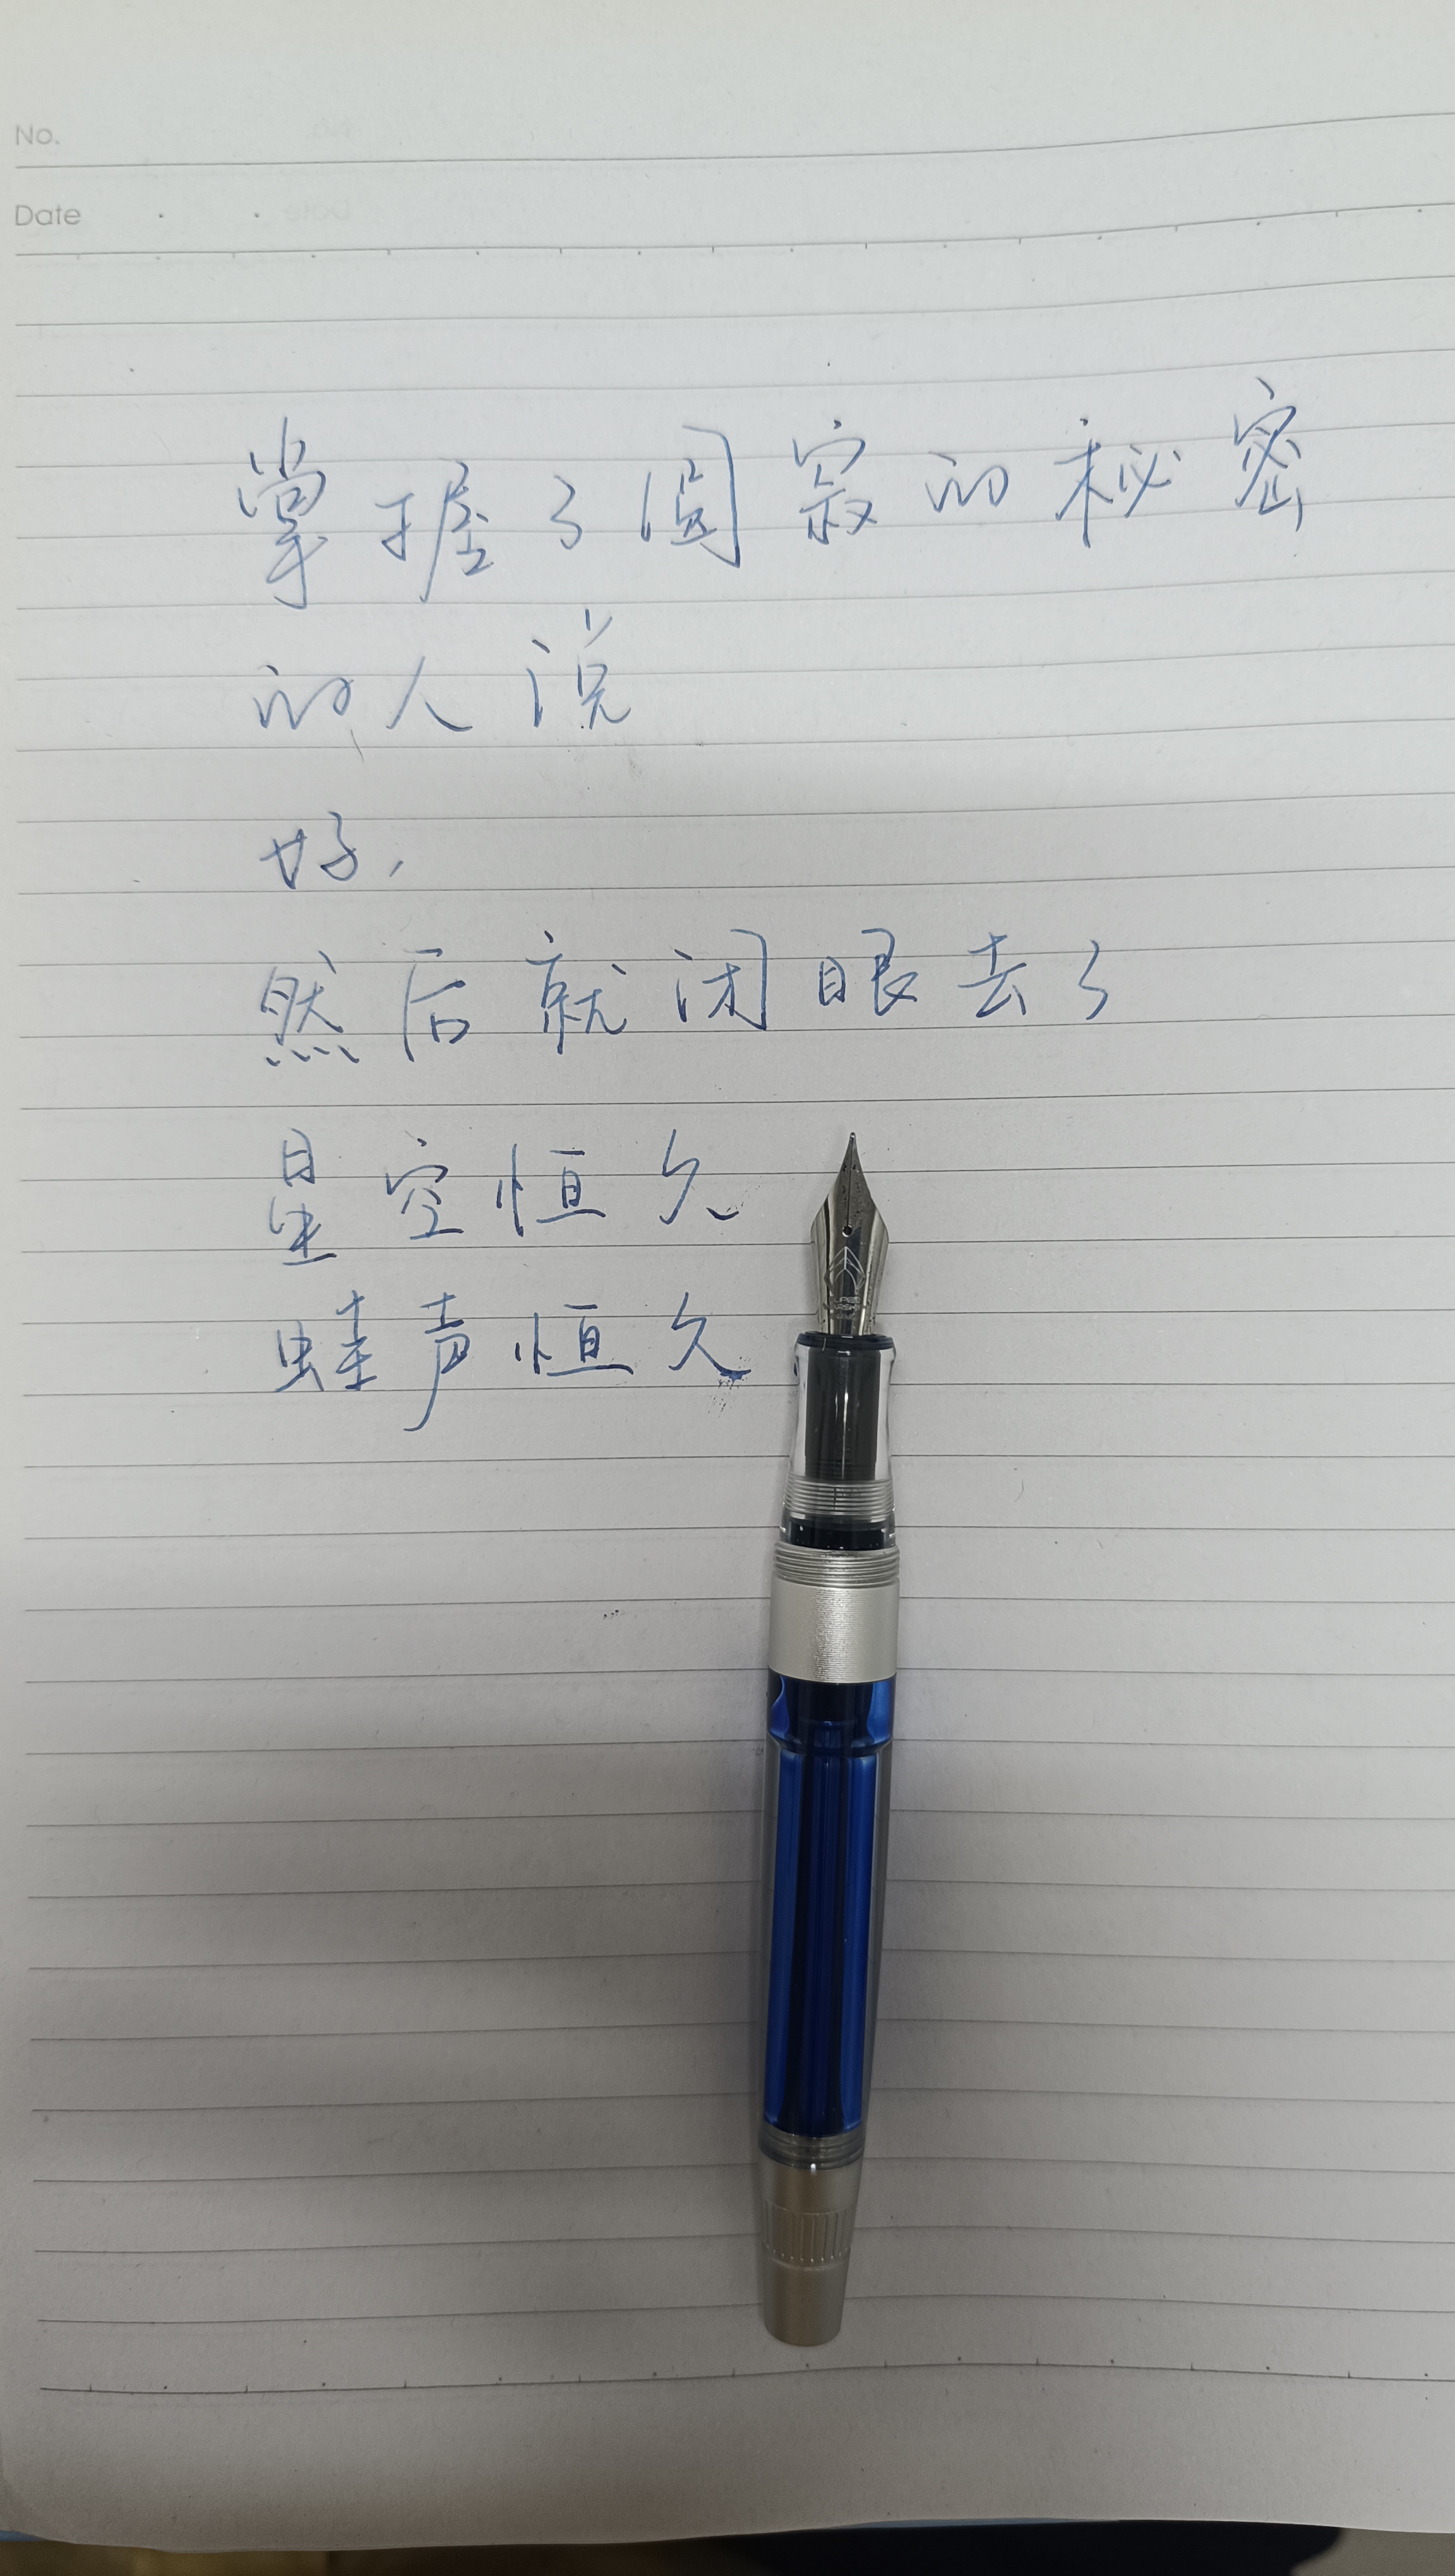 No.
Date
掌握了圆寂的秘密
的人说
好,
然后就闭眼去了
星空恒久
蛙声恒久